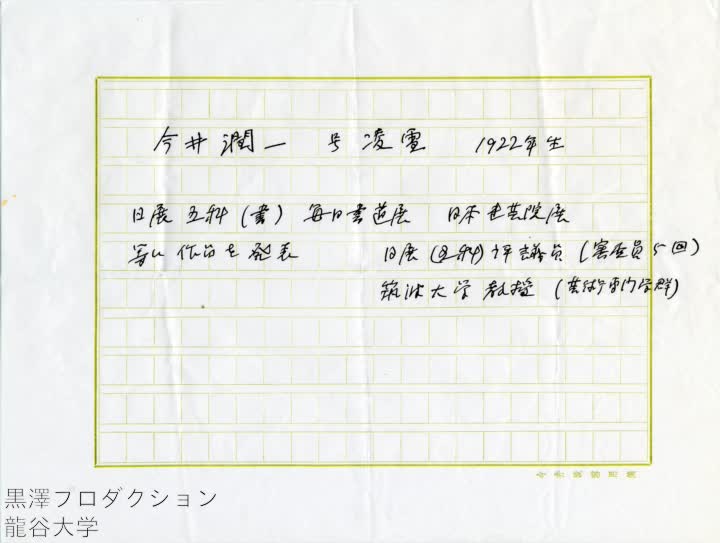 今井潤一 号 凌雪 1922年生
日展五科(書) 毎日書道展 日本書芸院展
等に作品を発表 日展(五科)評議員(審査員5回)
筑波大学教授(芸術専門学群)
今井凌雪用箋
黒澤プロダクション
龍谷大学